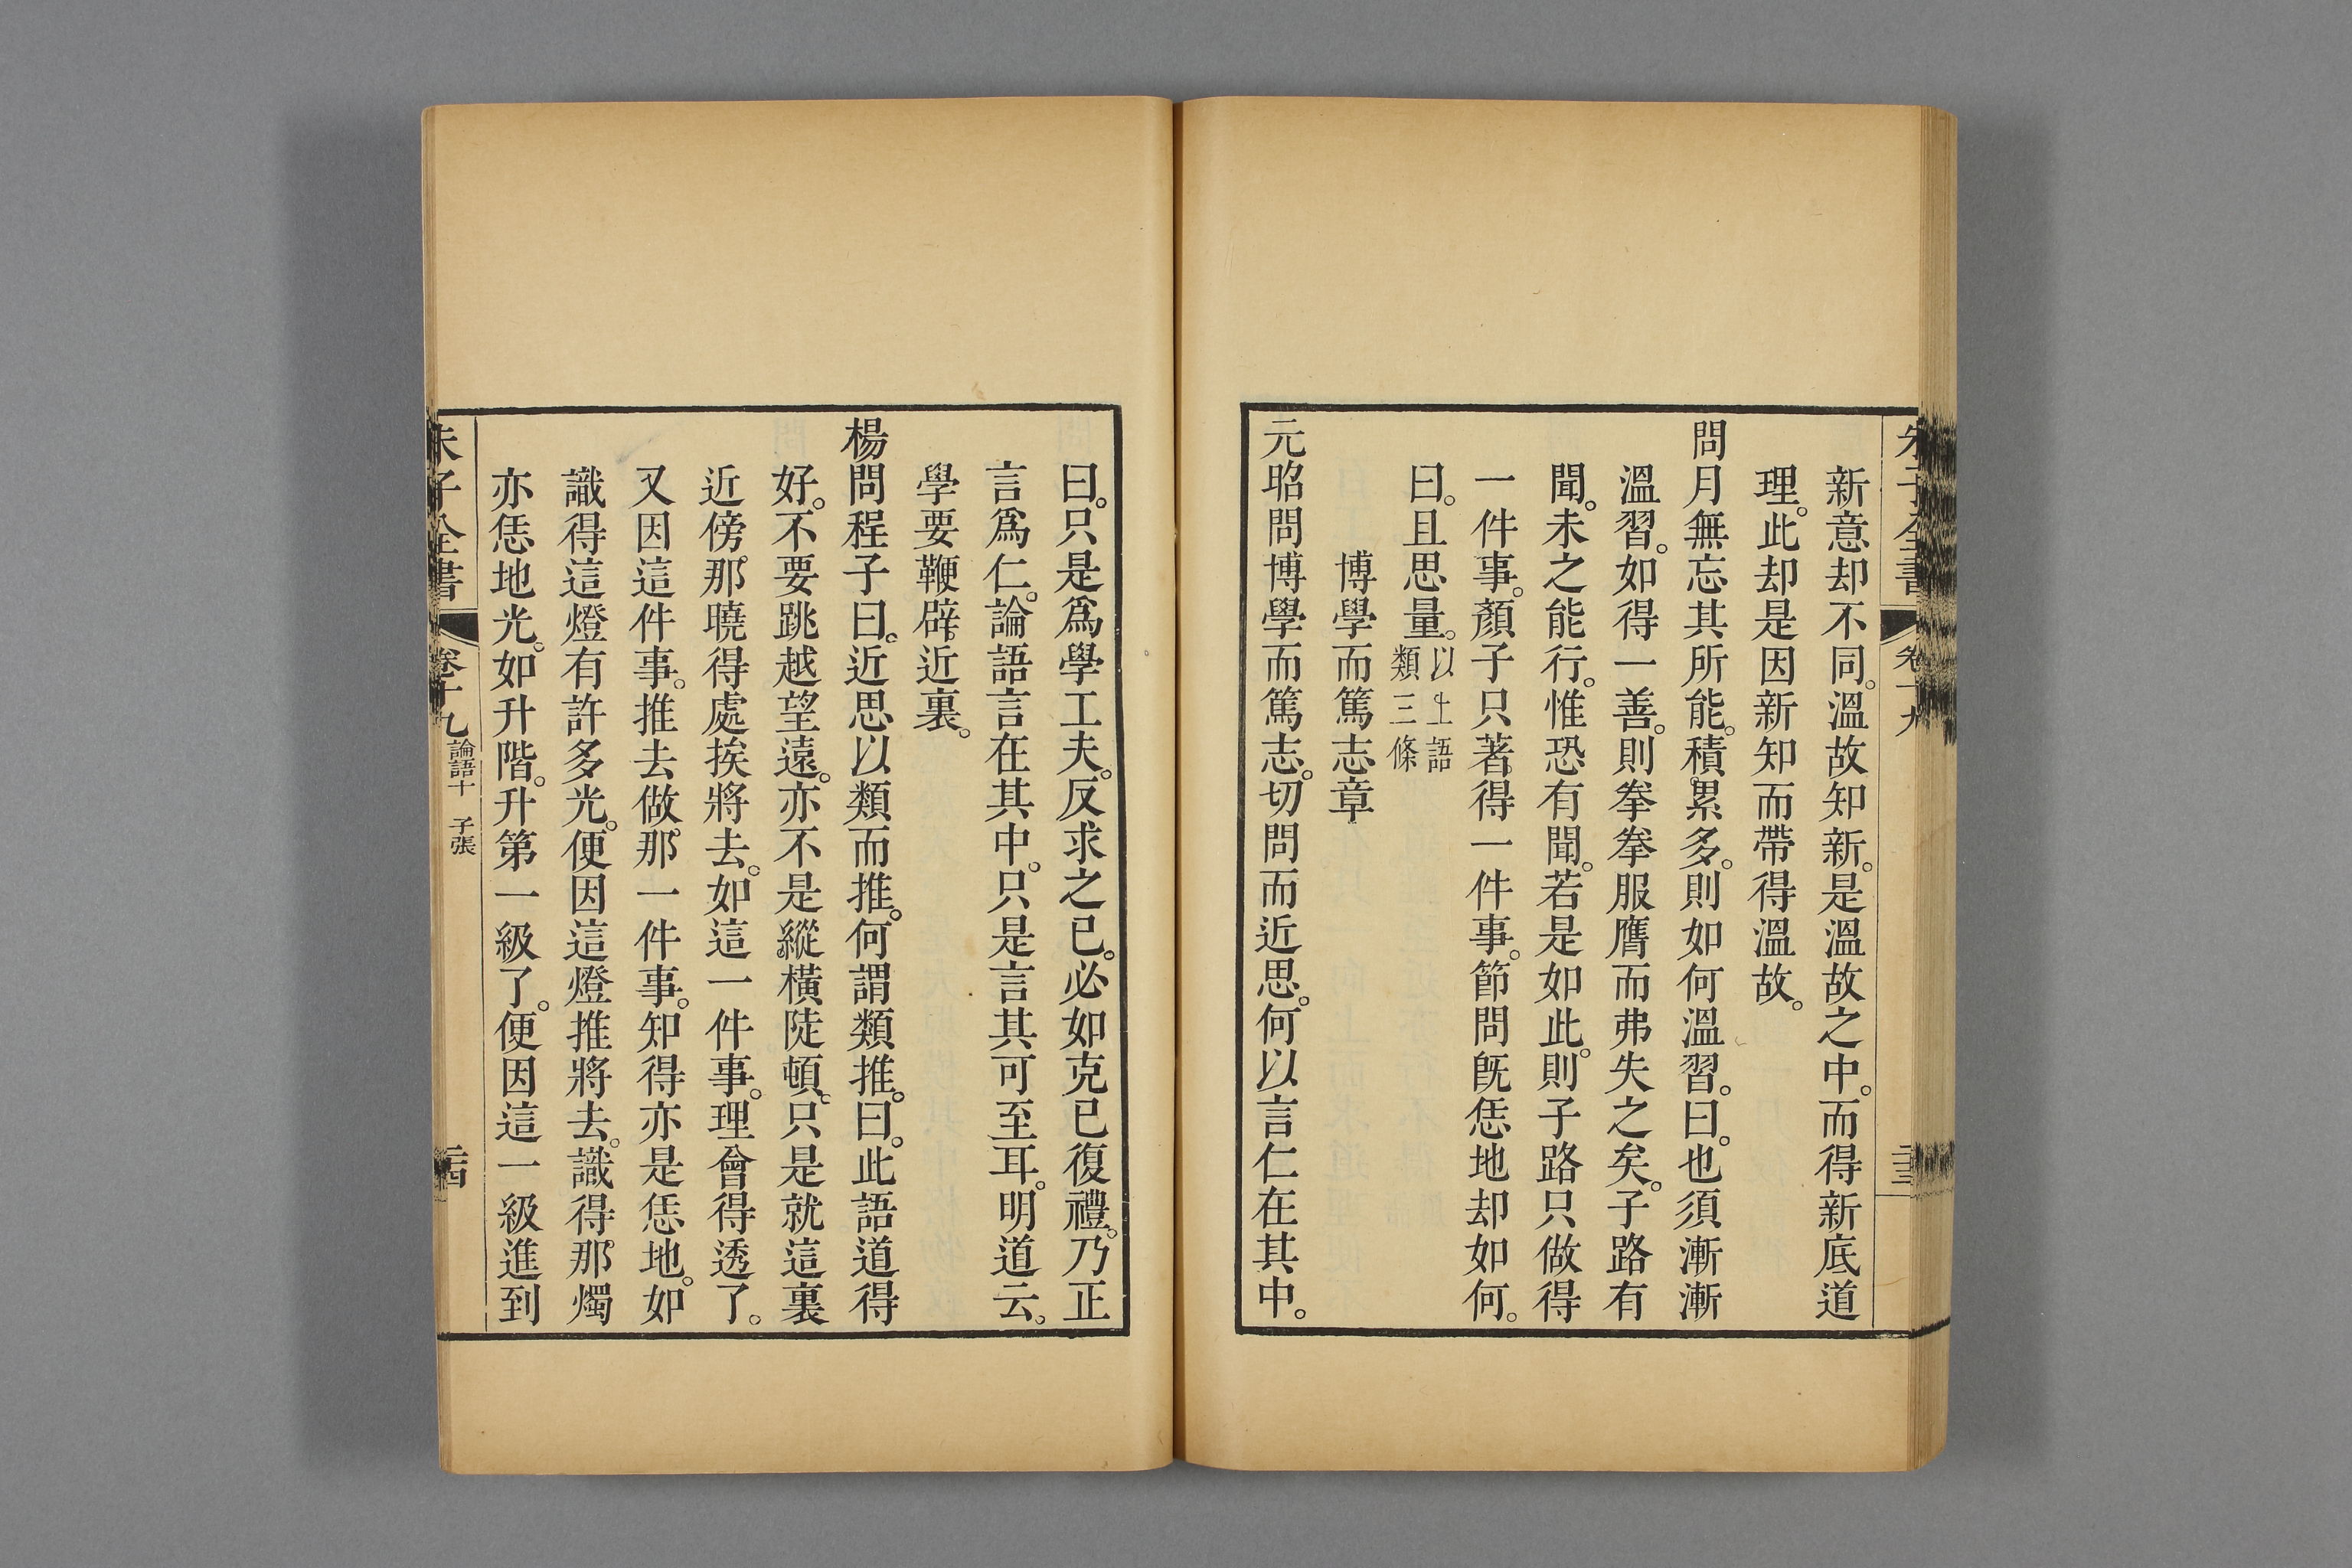 朱子全書 卷十九 二十三
新意却不同。溫故知新。是溫故之中。而得新底道
理。此却是因新知而帶得溫故。
問月無忘其所能。積累多。則如何溫習。曰。也須漸漸
溫習。如得一善。則拳拳服膺而弗失之矣。子路有
聞。未之能行。惟恐有聞。若是如此。則子路只做得
一件事。顏子只著得一件事。節問既恁地却如何。
曰。且思量。以上語類三條
博學而篤志章
元昭問博學而篤志。切問而近思。何以言仁在其中。
曰。只是爲學工夫。反求之已。必如克已復禮。乃正
言爲仁。論語言在其中。只是言其可至耳。明道云。
學要鞭辟近裏。
楊問程子曰。近思以類而推。何謂類推。曰。此語道得
好。不要跳越望遠。亦不是縱橫陡頓。只是就這裏
近傍那曉得處挨將去。如這一件事。理會得透了。
又因這件事。推去做那一件事。知得亦是恁地。如
識得這燈有許多光。便因這燈推將去。識得那燭
亦恁地光。如升階。升第一級了。便因這一級進到
朱子全書 卷十九 論語十 子張 二十四